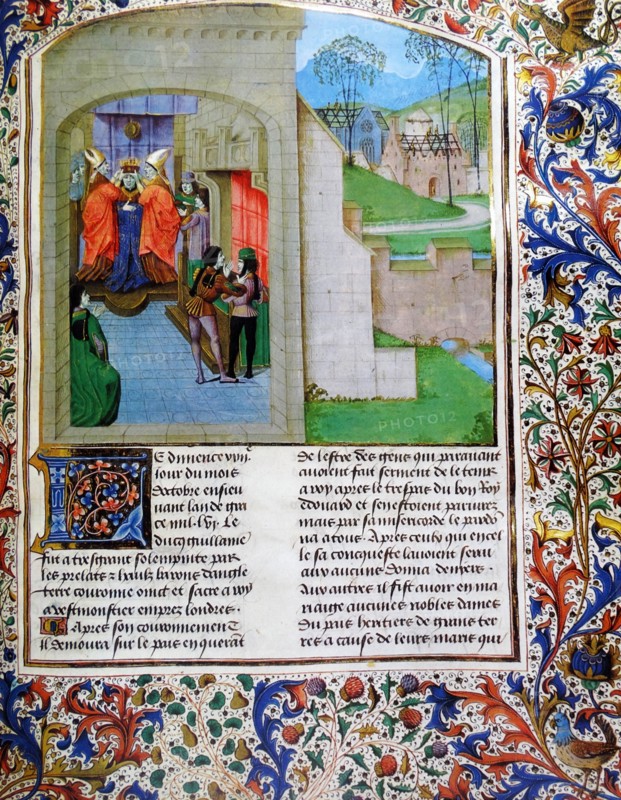 Le dimence xviije
iour du mois
doctobre ensieu
uant lan de gra
ce mil. lvj. Le
ducq guillame
fut a tresgrant solempnite par
les prelatz & haulz barons dangle
terre couronne oinct et sacre a roy
a westmonstier emprez londres.
Apres son couronnement
il demoura sur le pais en querāt
de lestre des gens qui parauant
auoient fait serment de le tenir
a roy apres le trespas du bon Roy
Edouard et sen estoient pariurez
mais par sa misericorde le pardō
na a tous. Apres ceulx qui en cel
le sa conqueste lauoient serui
aux aucuns donna deniers.
Aux autres il fist auoir en ma
riaige aucunes nobles dames
du pais heritieres de grans ter
res a cause de leurs maris qui
PHOTO12
PHOTO12
PHOTO12